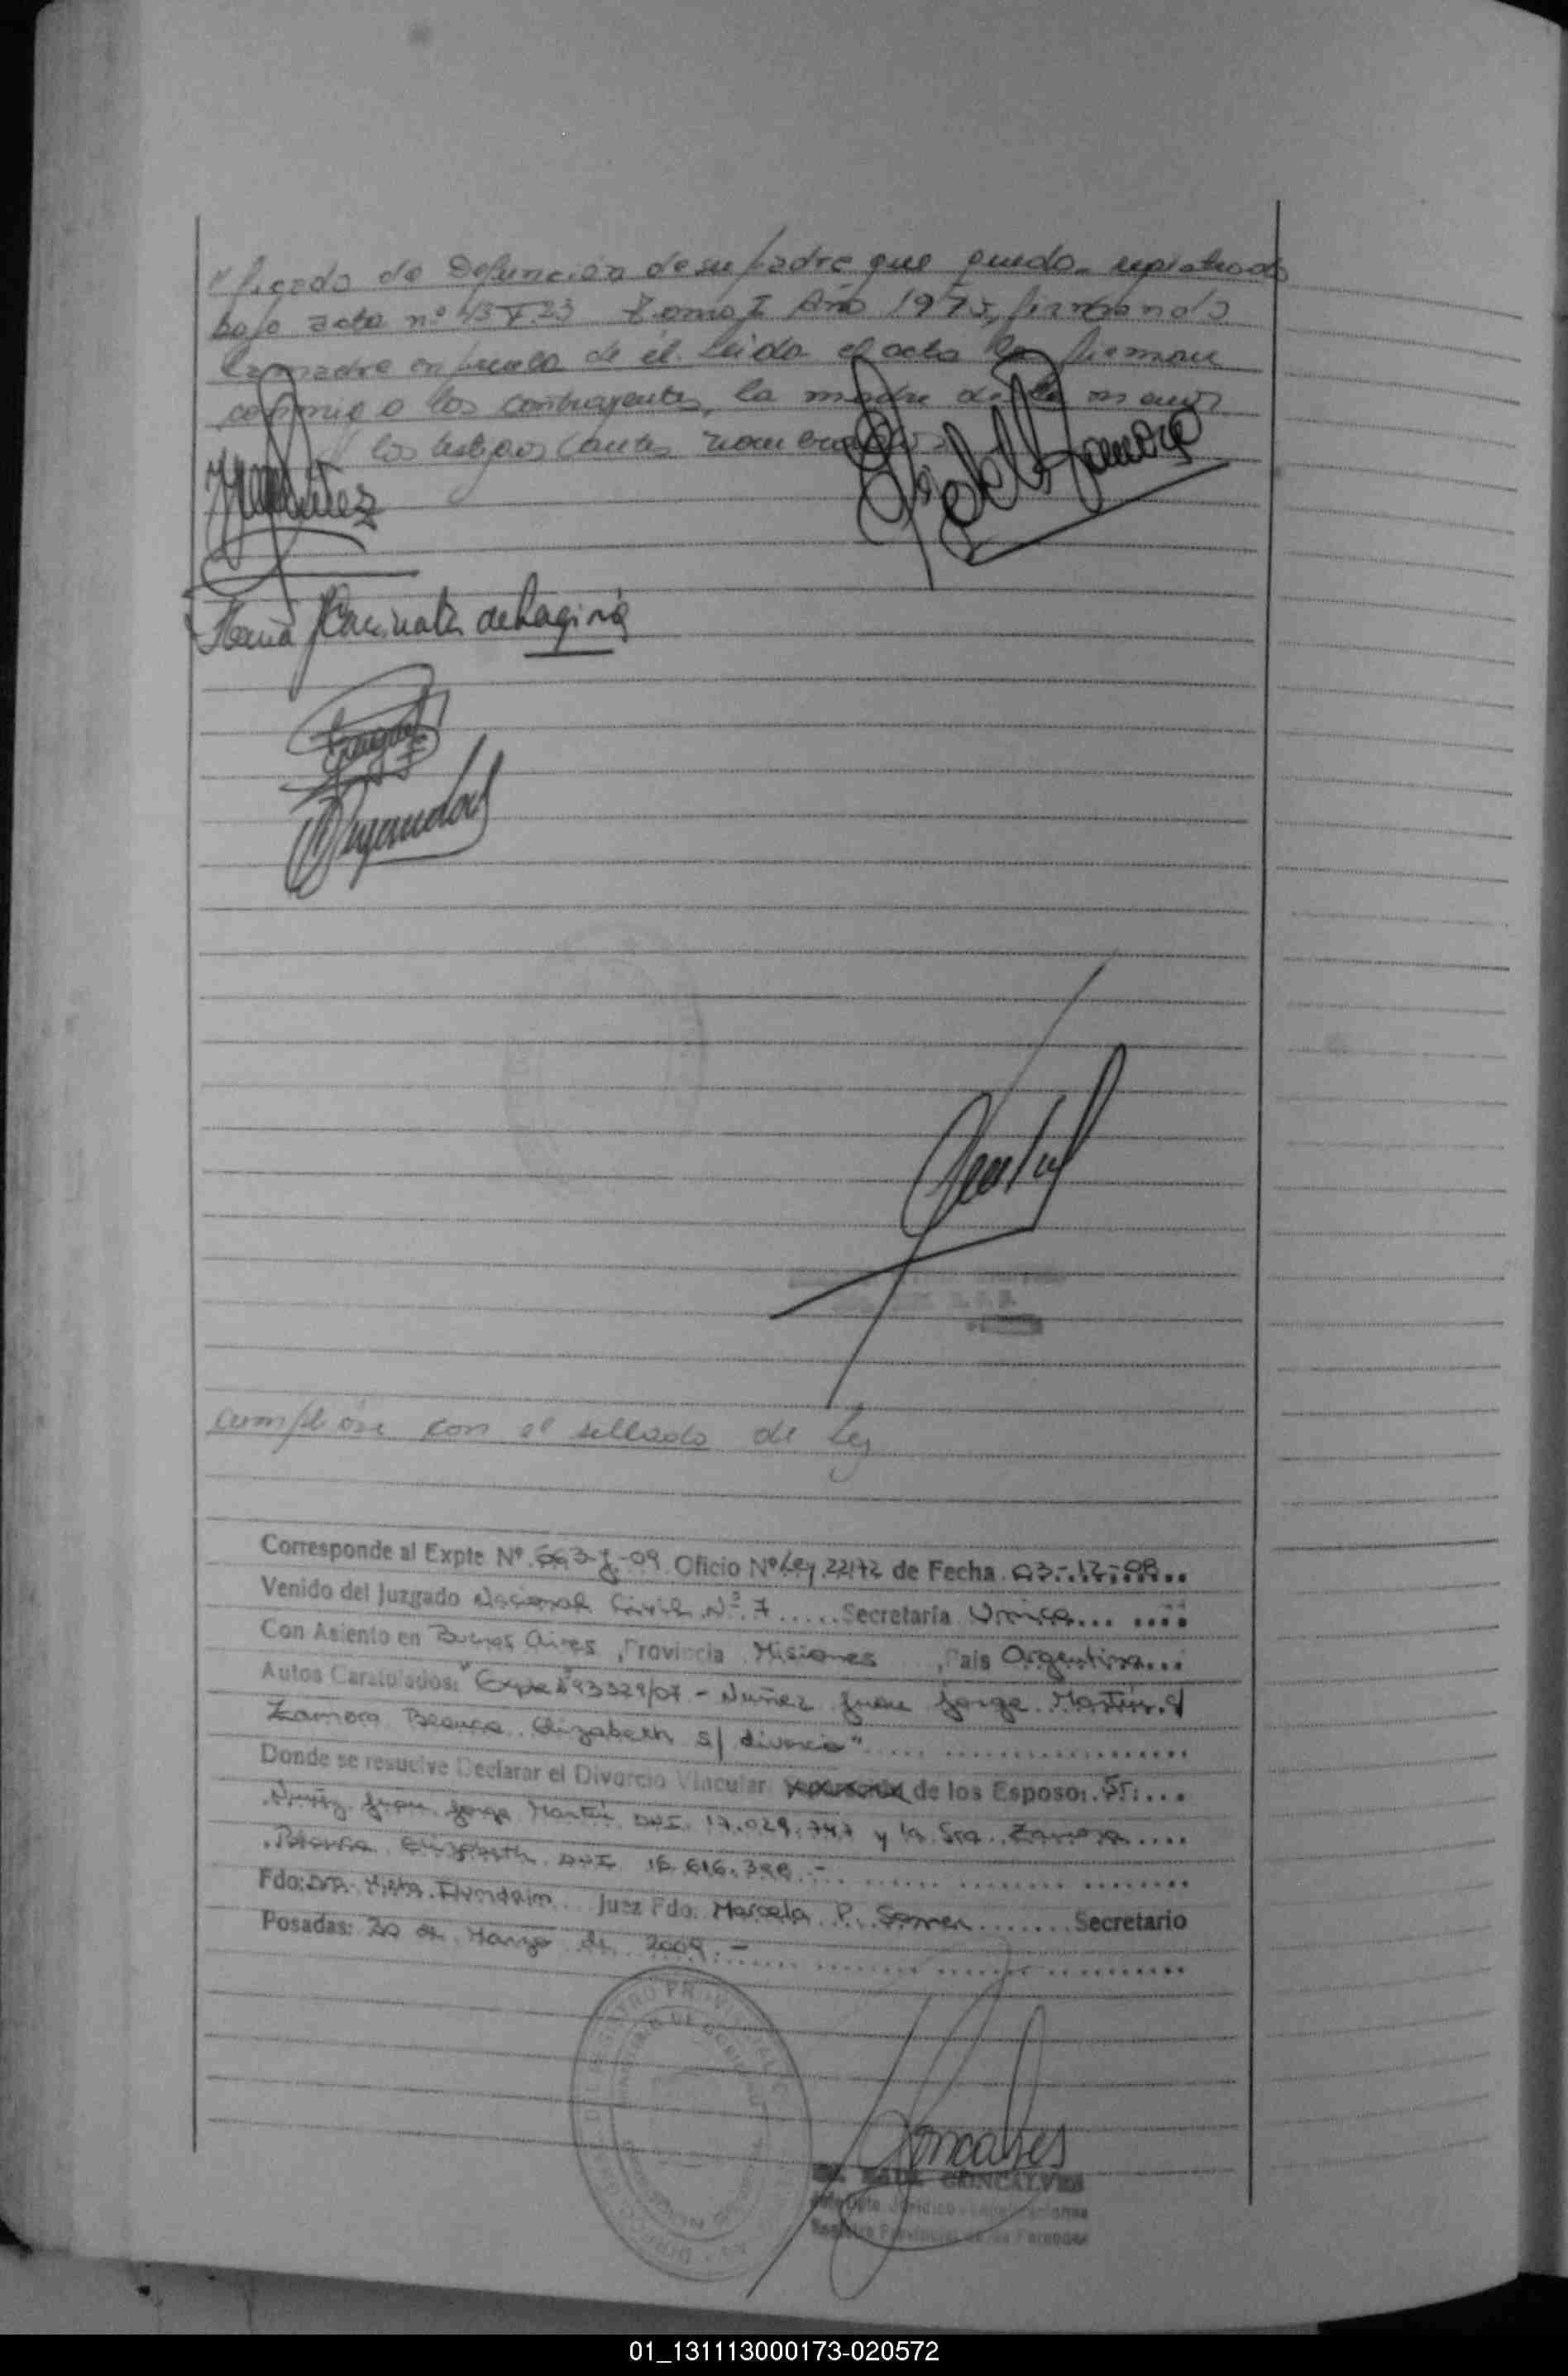 ficado de Defunción de su padre que quedo registrado
bajo acta nº 43 F.23 Tomo I Año 1975, firmando
la madre en prueba de él. Leida el acta la firman
conmigo los contrayentes, la madre de la menor
y los testigos antes nombrados
Zamora
Maria de Lagina
cumplióse con el sellado de Ley
Corresponde al Expte Nº 663-J-09 Oficio Nº Ley 22172 de Fecha 03-12-08
Venido del Juzgado Nacional Civil Nº 7 ..... Secretaría Unica
Con Asiento en Buenos Aires, Provincia Misiones, Pais Argentina
Autos Caratulados: "Expte Nº 93329/07 - Nuñez Juan Jorge Martín c/
Zamora Blanca Elizabeth s/ divorcio"
Donde se resuelve Declarar el Divorcio Vincular de los Esposos: Sr.
Nuñez Juan Jorge Martín DNI. 17.029.747 y la Sra. Zamora
Blanca Elizabeth DNI 16.616.398.-
Fdo: Dra. Mirta Juez Fdo. Marcela P. Somer ....... Secretario
Posadas: 30 de Marzo de 2009.-
Goncalves
RAUL GONCALVES
Registro Provincial de las Personas
01_131113000173-020572